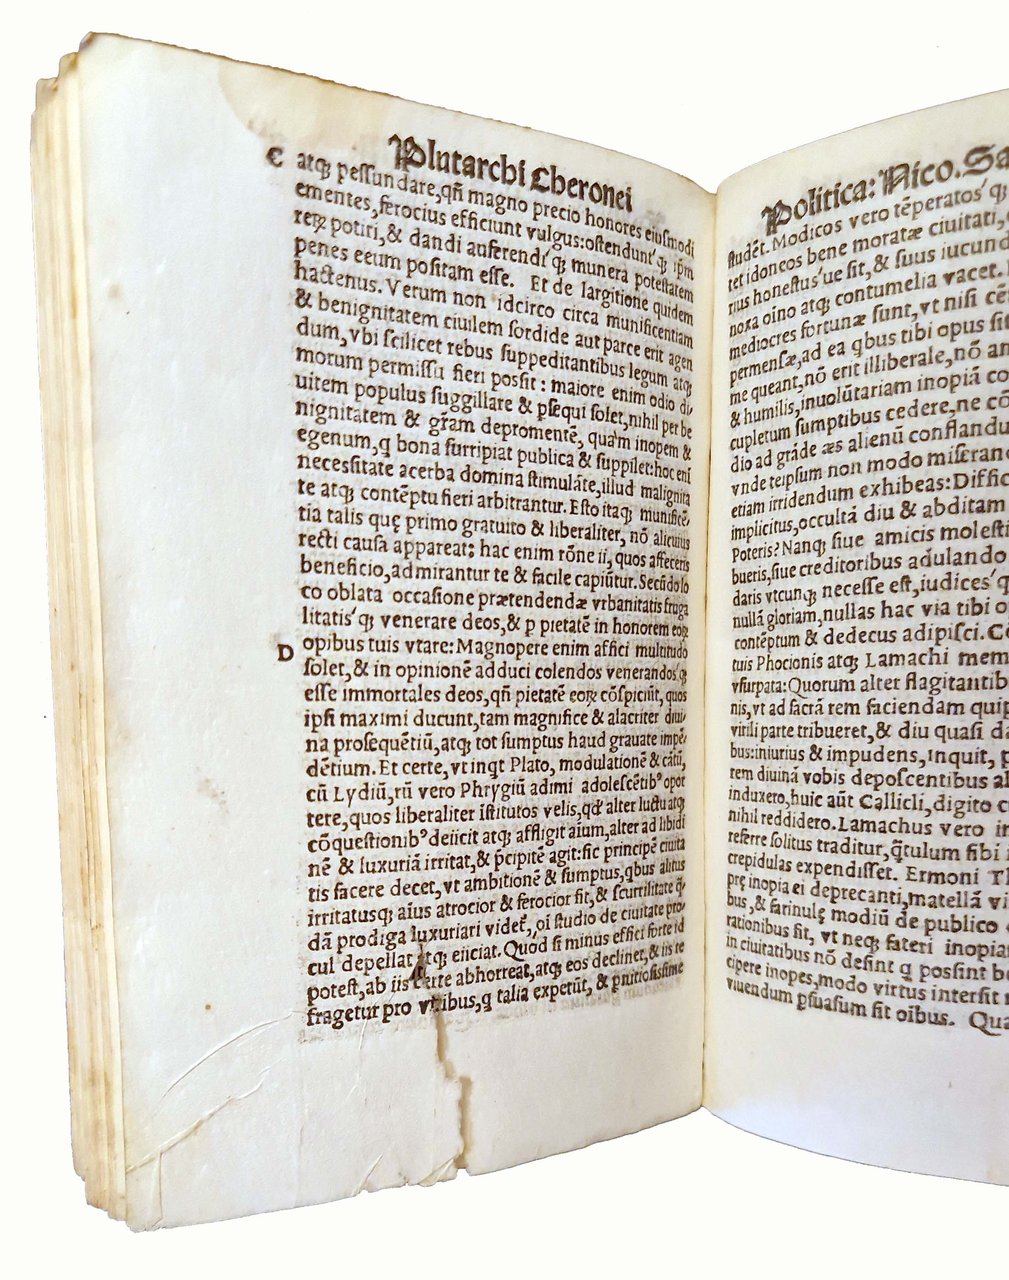 Plutarchi Cheronei
C
atqꝫ pessundare, qñ magno precio honores eiusmodi
ementes, ferocius efficiunt vulgus: ostendunt qꝫ ip̄m
reꝝ potiri, & dandi auferendi qꝫ munera potestatem
penes eeum positam esse. Et de largitione quidem
hactenus. Verum non idcirco circa munificentiam
& benignitatem ciuilem sordide aut parce erit agen
dum, vbi scilicet rebus suppeditantibus legum atqꝫ
morum permissu fieri possit: maiore enim odio di/
uitem populus suggillare & ꝑsequi solet, nihil per be
nignitatem & gr̄am depromentē, quam inopem &
egenum, q bona surripiat publica & suppilet: hoc em̄
necessitate acerba domina stimulāte, illud malignita
te atqꝫ contēptu fieri arbitrantur. Esto itaqꝫ munificē/
tia talis quę primo gratuito & liberaliter, nō alicuius
recti causa appareat: hac enim rōne ii, quos affeceris
beneficio, admirantur te & facile capiūtur. Secūdo lo
co oblata occasione prætendendæ vrbanitatis fruga
litatis qꝫ venerare deos, & ꝑ pietatē in honorem eoꝝ
D
opibus tuis vtare: Magnopere enim affici multitudo
solet, & in opinionē adduci colendos venerandos qꝫ
esse immortales deos, qñ pietatē eoꝝ cōspiciūt, quos
ipsi maximi ducunt, tam magnifice & alacriter diui/
na prosequētiū, atqꝫ tot sumptus haud grauate impē/
dētium. Et certe, vt inqt Plato, modulationē & cātū,
cū Lydiū, tū vero Phrygiū adimi adolescētibꝰ opor
tere, quos liberaliter īstitutos velis, qđ alter luctu atqꝫ
cōquestionibꝰ deiicit atqꝫ affligit aium, alter ad libidi
nē & luxuriā irritat, & p̄cipitē agit: sic principē ciuita
tis facere decet, vt ambitionē & sumptus, qbus alitus
irritatusqꝫ aīus atrocior & ferocior fit, & scurrilitate q̄/
dā prodiga luxuriari videt̄, oī studio de ciuitate pro/
cul depellat atqꝫ eiiciat. Quod si minus effici forte id
potest, ab iis certe abhorreat, atqꝫ eos declinet, & iis re
fragetur pro viribus, q talia expetūt, & prutiosissime
Politica: Nico. Sa
studēt. Modicos vero tēperatos qꝫ
tet idoneos bene moratæ ciuitati,
tius honestus ue sit, & suus iucund
noxa oīno atqꝫ contumelia vacet.
mediocres fortunæ sunt, vt nisi cē
permensæ, ad ea qbus tibi opus sit
me queant, nō erit illiberale, nō an
& humilis, inuolūtariam inopiā co
cupletum sumptibus cedere, ne cō
dio ad grāde æs alienū conflandu
vnde teipsum non modo miseran
etiam irridendum exhibeas: Diffic
implicitus, occultā diu & abditam
Poteris? Nanqꝫ siue amicis molesti
bueris, siue creditoribus adulando
daris vtcunqꝫ necesse est, iudices q
nullā gloriam, nullas hac via tibi o
contēptum & dedecus adipisci. Co
tuis Phocionis atqꝫ Lamachi mem
vsurpata: Quorum alter flagitantib
nis, vt ad sacrā rem faciendam quip
virili parte tribueret, & diu quasi da
bus: iniurius & impudens, inquit, p
rem diuinā vobis deposcentibus al
induxero, huic aūt Callicli, digito c
nihil reddidero. Lamachus vero in
referre solitus traditur, q̄tulum sibi i
crepidulas expendisset. Ermoni Th
prę inopia ei deprecanti, matellā vi
bus, & farinulę modiū de publico
rationibus fit, vt neqꝫ fateri inopia
in ciuitatibus nō desint q possint be
cipere inopes, modo virtus intersit
viuendum ꝑsuasum sit oībus. Qua